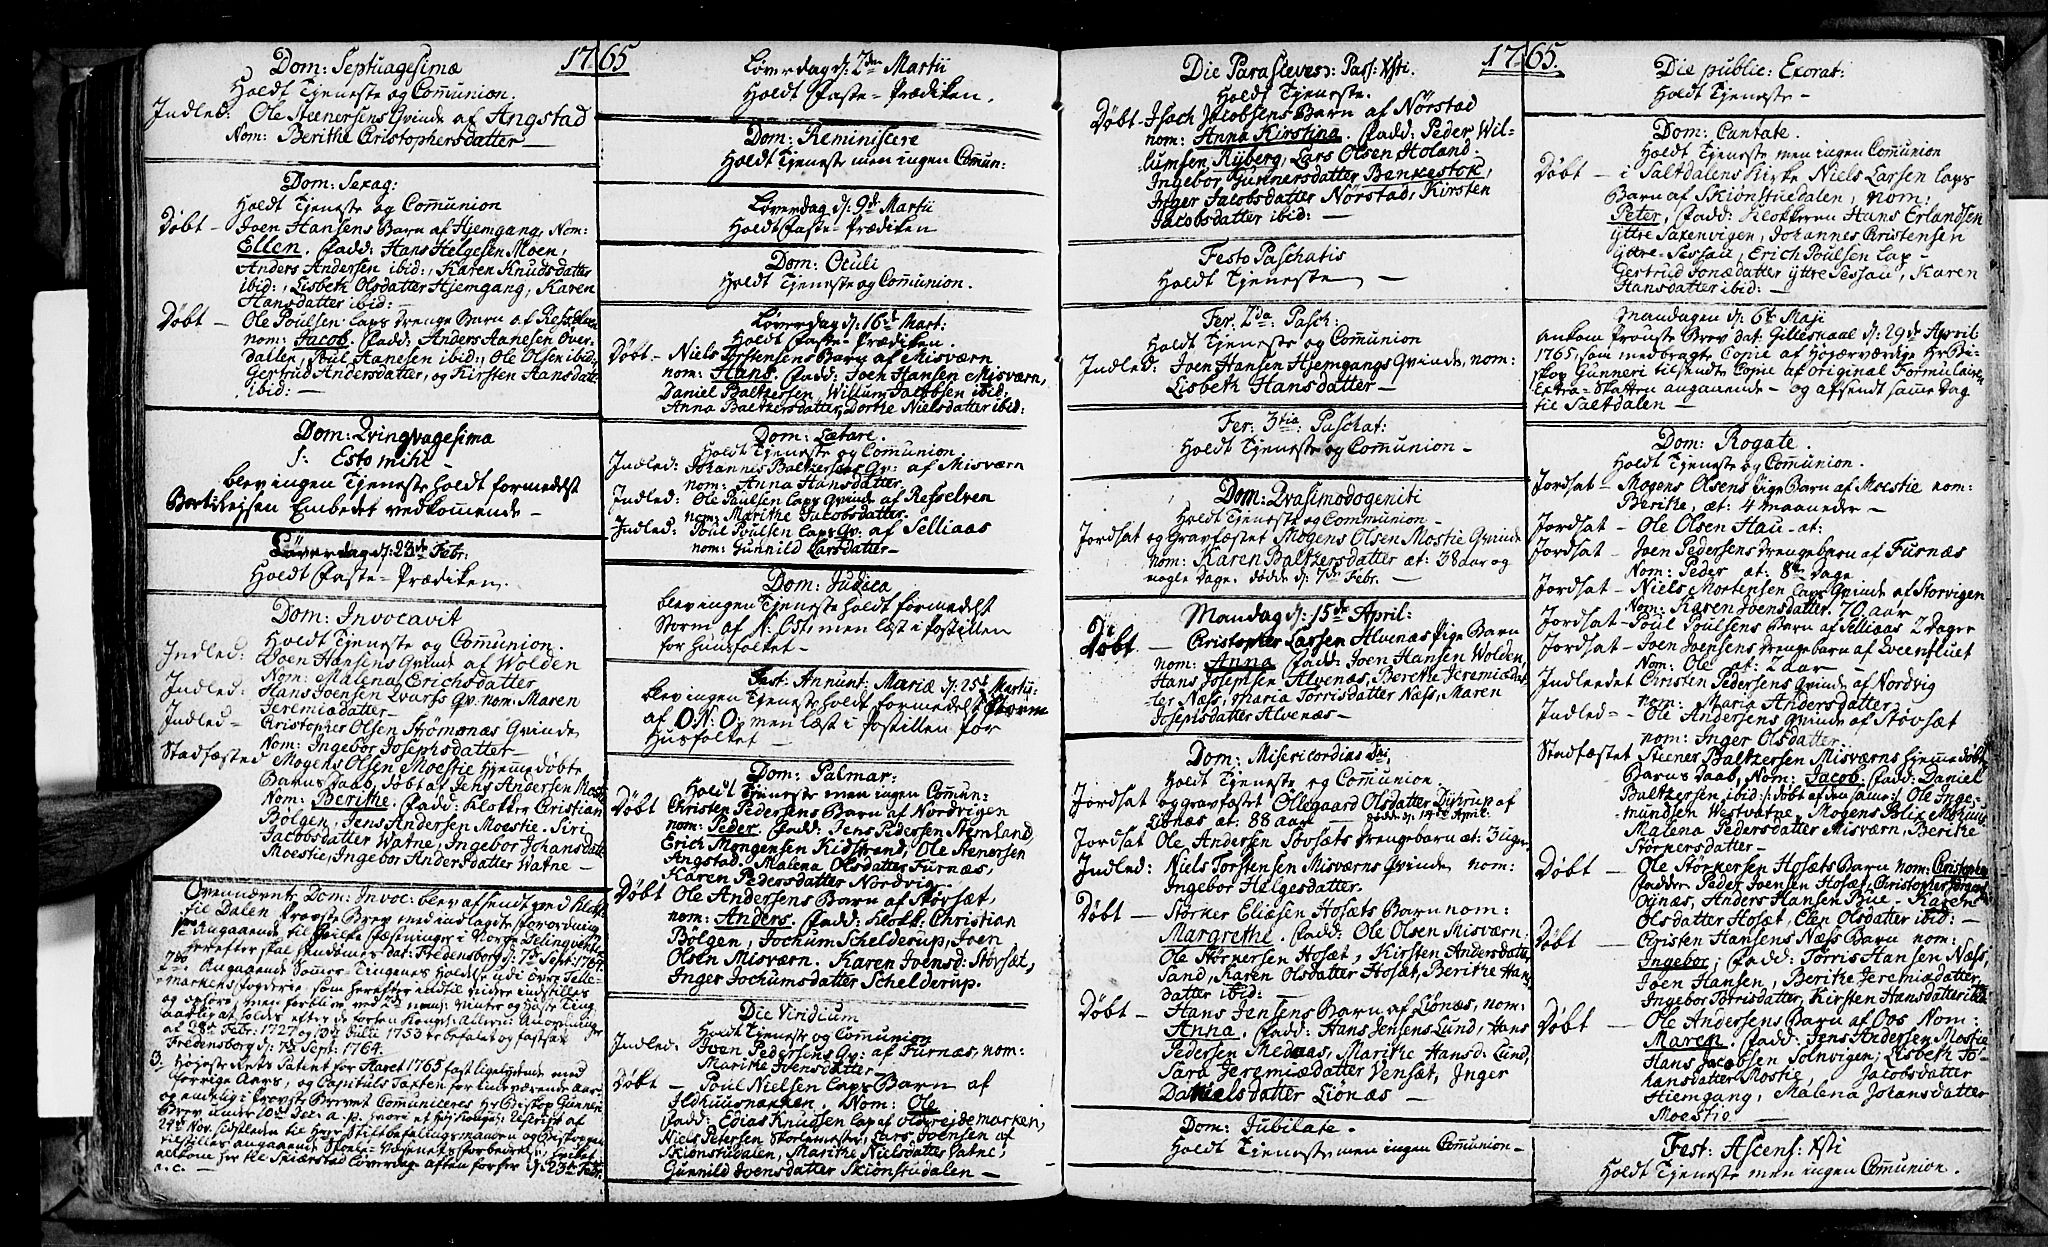 1765
Dom: Septuagesimæ
Holdt Tjeneste og Com̄union.
Indled: Ole Steenersens Qvinde af Angstad
Nom: Berithe Cristophersdatter —
Dom: Sexag:
Holdt Tjeneste og Com̄union
Døbt — Joen Hansens Barn af Hjemgang, Nom:
Ellen. Fadd: Hans Helgesen Moen,
Anders Andersen ibid:, Karen Knudsdatter
ibid:, Lisbeth Olsdatter Hjemgang, Karen
Hansdatter ibid: —
Døbt — Ole Poulsen Laps drenge Barn af
nom: Jacob. Fadd: Anders Hanesen Over-
dallen, Poul Hanesen ibid:, Ole Olsen ibid:
Gertrud Andersdatter, og Kirsten Hansdatter
ibid: —
Dom: Qvingvagesima
s: Esto mihi —
blev ingen Tjeneste holdt formedelst
Embedet vedkomende —
Løverdag d: 23de Febr:
Holdt Faste-Prædiken.
Dom: Invocavit
Holdt Tjeneste og Com̄union.
Indled: Joen Hansens Qvinde af Wolden
Nom: Malena Erichsdatter
Indled: Hans Joensen Evarss Qv: nom: Maren
Jeremiædatter —
Indled — Cristopher Olsen Strømsnæs Qvinde
Nom: Ingebor Josephsdatter —
Stadfæsted Mogens Olsen Moestie Hjemme døbte
Barns Daab, døbt af Jens Andersen Mostie
Nom: Berithe. Fadd: Klokker Cristian
Bølgen, Jens Andersen Moestie. Siri
Jacobsdatter Watne, Ingebor Johansdatter
Moestie, Ingebor Andersdatter Watne —
Ovennævnt Dom: Invoc: blev afsendt med
til Dalen Provste Brev med indlagte forordning
1o Angaaende til hvilke Fæstninger i Norge Delinqventer
herefter skal hendømes dat: Fredensborg d: 7de Sept: 1764.
2do Angaaende Somer-Tingenes Holdelse udi Øvre Telle-
Markens Fogderie, som herefter indtil videre indstilles
og ophøre, men forblive ved 2de nemlig: Vinter og Høste Ting
aarlig at holdes efter de forrige Konge: Allern: Anordninger
af 28de Febr: 1727 og Julii 1753 er befalet og fastsat
Fredensborg d: 7de Sept: 1764.
3. Høyeste Rets Patent for Aaret 1765 fast ligelydende med
forrige Aars, og Capituls Taxten for indeværende Aar:
og endelig i Provste Brevet Comuniceres Hr Biskop Gunneri
Brev under 10de Dec: a. p. hvori et Høy Kongel: Rescript af
24de Nov. sidstleden til Herr Stiftbefalingsmanden og Biskoppen
tilstilles angaaende Skole-Væsenets forbedrelse, hvilket
alkom her til Skiærstad Løverdag aften forhen d: 23de Febr:
a. c. —
Løverdag d: 2den Martii
Holdt Faste-Prædiken.
Dom: Reminiscere
Holdt Tjeneste men ingen Com̄un:
Løverdag d: 9de Martii
Holdt Faste-Prædiken
Dom: Oculi
Holdt Tjeneste og Com̄union.
Løverdag d: 16de Mart:
Holdt Faste-Prædiken.
Døbt — Niels Torstensens Barn af Misværn
nom: Hans. Fadd: Joen Hansen Misværn,
Daniel Baltzersen, Willum Jacobsen ibid:
Anna Baltzersdatter, Dorthe Nielsdatter ibid:
Dom: Lætare.
Holdt Tjeneste og Com̄union.
Indled: Johannes Baltzersens Qv: af Misværn
nom: Anna Hansdatter.
Indled: Ole Poulsen Laps Qvinde af Resselven
nom: Marithe Jacobsdatter.
Indled: Poul Poulsen Laps Qv: afSelliaas
nom: Gunnild Larsdatter —
Dom: Judica
blev ingen Tjeneste holdt formedelst
Storm af N: Ost, men læst i Postillen
for Huusfolket —
Fest: Annunt: Mariæ d: 25de Martii:
blev ingen Tjeneste holdt formedelst Storm
af O. N: O; men læst i Postillen for
Husfolket —
Dom: Palmar:
Holdt Tjeneste men ingen Com̄un:
Døbt Christen Pedersens Barn af Nordvigen
nom: Peder. Fadd: Jens Pedersen Stemland,
Erich Mongensen Kidstrand, Ole Stenersen
Angstad. Malena Olsdatter Furnæs,
Karen Pedersdatter Nordvig.
Døbt Ole Andersens Barn af Størsæt,
nom: Anders. Fadd: Klokk: Christian
Bölgen, Jochum Schelderup, Joen
Olsen Misværn. Karen Joensd: Størsæt,
Inger Jochumsdatter Schelderup.
Die Viridium
Holdt Tjeneste og Com̄union
Indled: Joen Pedersens Qv: af Furnæs, nom:
Marithe Ivensdatter —
Døbt — Poul Nielsen Laps Barn af
Ildhuusnakken. Nom: Ole
Fadd: Edias Knudsen Lap af Oldereidemarken,
Niels Petersen Storlemester, Lars Joensen af
Skiönstudalen, Marithe Nielsdatter Vatne,
Gunnild Ivensdatter Skiönstudalen —
1765.
Die Parasleves: Pass: Xsti.
Holdt Tjeneste.
Døbt — Isach Jacobsens Barn af Nörstad
nom: Anna Kirstina. Fadd: Peder Wil-
lumsen Ryberg, Lars Olsen Holand.
Ingebor Gunnersdatter Benkestok,
Inger Jacobsdatter Nörstad, Kirsten
Jacobsdatter ibid: —
Festo Paschatis
Holdt Tjeneste —
Fer. 2da: Pasch:
Holdt Tjeneste og Com̄union
Indled: Joen Hansen Hjemgangs Qvinde, nom:
Lisbeth Hansdatter —
Fer: 3tia: Paschat:
Holdt Tjeneste og Com̄union —
Dom: Qvasimodogeniti
Holdt Tjeneste og Communion —
Jordsat og Gravfæstet Mogens Olsen Mostie Qvinde
nom: Karen Baltzersdatter æt: 38 aar og
nogle dage. døde d: 7de Febr. —
Mandag d: 15de April:
Døbt — Cristopher Larsen Alvenæs Pige Barn
nom: Anna Fadd: Joen Hansen Wolden,
Hans Josephsen Alvenæs, Berethe Jeremiædat-
ter Næss, Maria Torrisdatter Næss, Maren
Josephsdatter Alvenæs —
Dom: Misericordias dni,
Holdt Tjeneste og Com̄union
Jordsat og gravfæstet Ollegaard Olsdatter Distrup af
Liönæs æt: 88 aar — døde d: 14de April.
Jordsat Ole Andersen Sovsæts Drengebarn æt: 3 uger
Indled: Niels Torstensen Misværns Qvinde nom:
Ingebor Helgesdatter.
Døbt — Störker Eliæsen Hosæts Barn nom:
Margrethe. Fadd: Ole Olsen Misværn:
Ole Störkersen Hosæt, Kirsten Andersdatter
Sand, Karen Olsdatter Hosæt, Berithe Han-
datter ibid: —
Døbt — Hans Jensens Barn af Liönæs, nom:
Anna. Fadd: Hans Jensens Lund, Hans
Pedersen Mednaas, Marithe Hansd: Lund,
Sara Jeremiædatter Vensæt, Inger
Danielsdatter Liönæs —
Dom: Jubilate.
Holdt Tjeneste men ingen Com̄union —
Die public: Exorat:
Holdt Tjeneste —
Dom: Cantate.
Holdt Tjeneste men ingen Com̄union
Døbt — i Saltdalens Kirke Niels Larsen Laps
Barn af Skiönstuedalen, nom:
Peter, Fadd: Klokkeren Hans Erlandsen
yttre Saxenvigen, Johannes Cristensen
yttre-Sessau, Erich Poulsen Lap —
Gertrud Jonædatter yttre Sessau, Karen
Hansdatter ibid: —
Mandagen d: 6te Maji
ankom Provste Brev dat: Gilleskaal d: 29de April
1765, som medbragte Copie af Høyærværdige Hr Bi-
skop Gunneri tilsendte Copie af original Formularen
Extra-Skatten angaaende — og afsendt same Dag
til Saltdalen —
Dom: Rogate.
Holdt Tjeneste og Com̄union.
Jordsat — Mogens Olsens Pige Barn af Moestie nom:
Berithe, æt: 4 maaneder —
Jordsat — Ole Olsen Hau — æt:
Jordsat — Joen Pedersens drengebarn af Furnæs
Nom: Peder æt: 8te Dage
Jordsat — Niels Mortensen Laps Qvinde af Storvigen
Nom: Karen Joensdatter. 70 aar
Jordsat — Poul Poulsens Barn af Selliaas 2 Dage
Jordsat — Joen Joensens drengebarn af Eveenfluet
Nom: Ole æt: 2 aar —
Indleedet Christen Pedersens Qvinde af Nordvig
nom: Maria Andersdatter
Indled — Ole Andersens Qvinde af Størsæt
nom: Inger Olsdatter
Stadfæstet Steener Baltzersen Misværns hjemme døbte
Barns Daab, Nom: Jacob. Fadd: Daniel
Baltzersen ibid: /: døbt af den same :/ Ole Inge-
mundsen Westvatne, Mogens Blix
Malena Pedersdatter Misværn, Berithe
Störkersdatter —
Døbt — Ole Störkersen Hosæts Barn nom: Cristopher
Fadder Peder Joensen Hosæt, Christopher Jörgens:
Ognæs, Anders Hansen Bue — Karen
Olsdatter Hosæt, Elen Olsdatter ibid: —
Døbt — Cristen Hansens Næss Barn nom:
Ingebor; Fadd: Torris Hansen Næss,
Joen Hansen, Berithe Jeremiædatter,
Ingebor Torrisdatter, Kirsten Hansdatter ibid:
Døbt — Ole Andersens Barn af Oos Nom:
Maren. Fadd: Jens Andersen Mostie
Hans Jacobsen Solnvigen, Lisbeth Jo-
hansdatter Mostie, Jacobsdatter
Hiemgang, Malena Johansdatter
Moestie —
Fest: Ascens: Xsti
Holdt Tjeneste men ingen Com̄union.